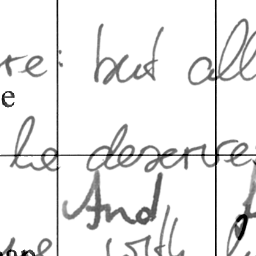 re: but all
e
he deserve
And,
with